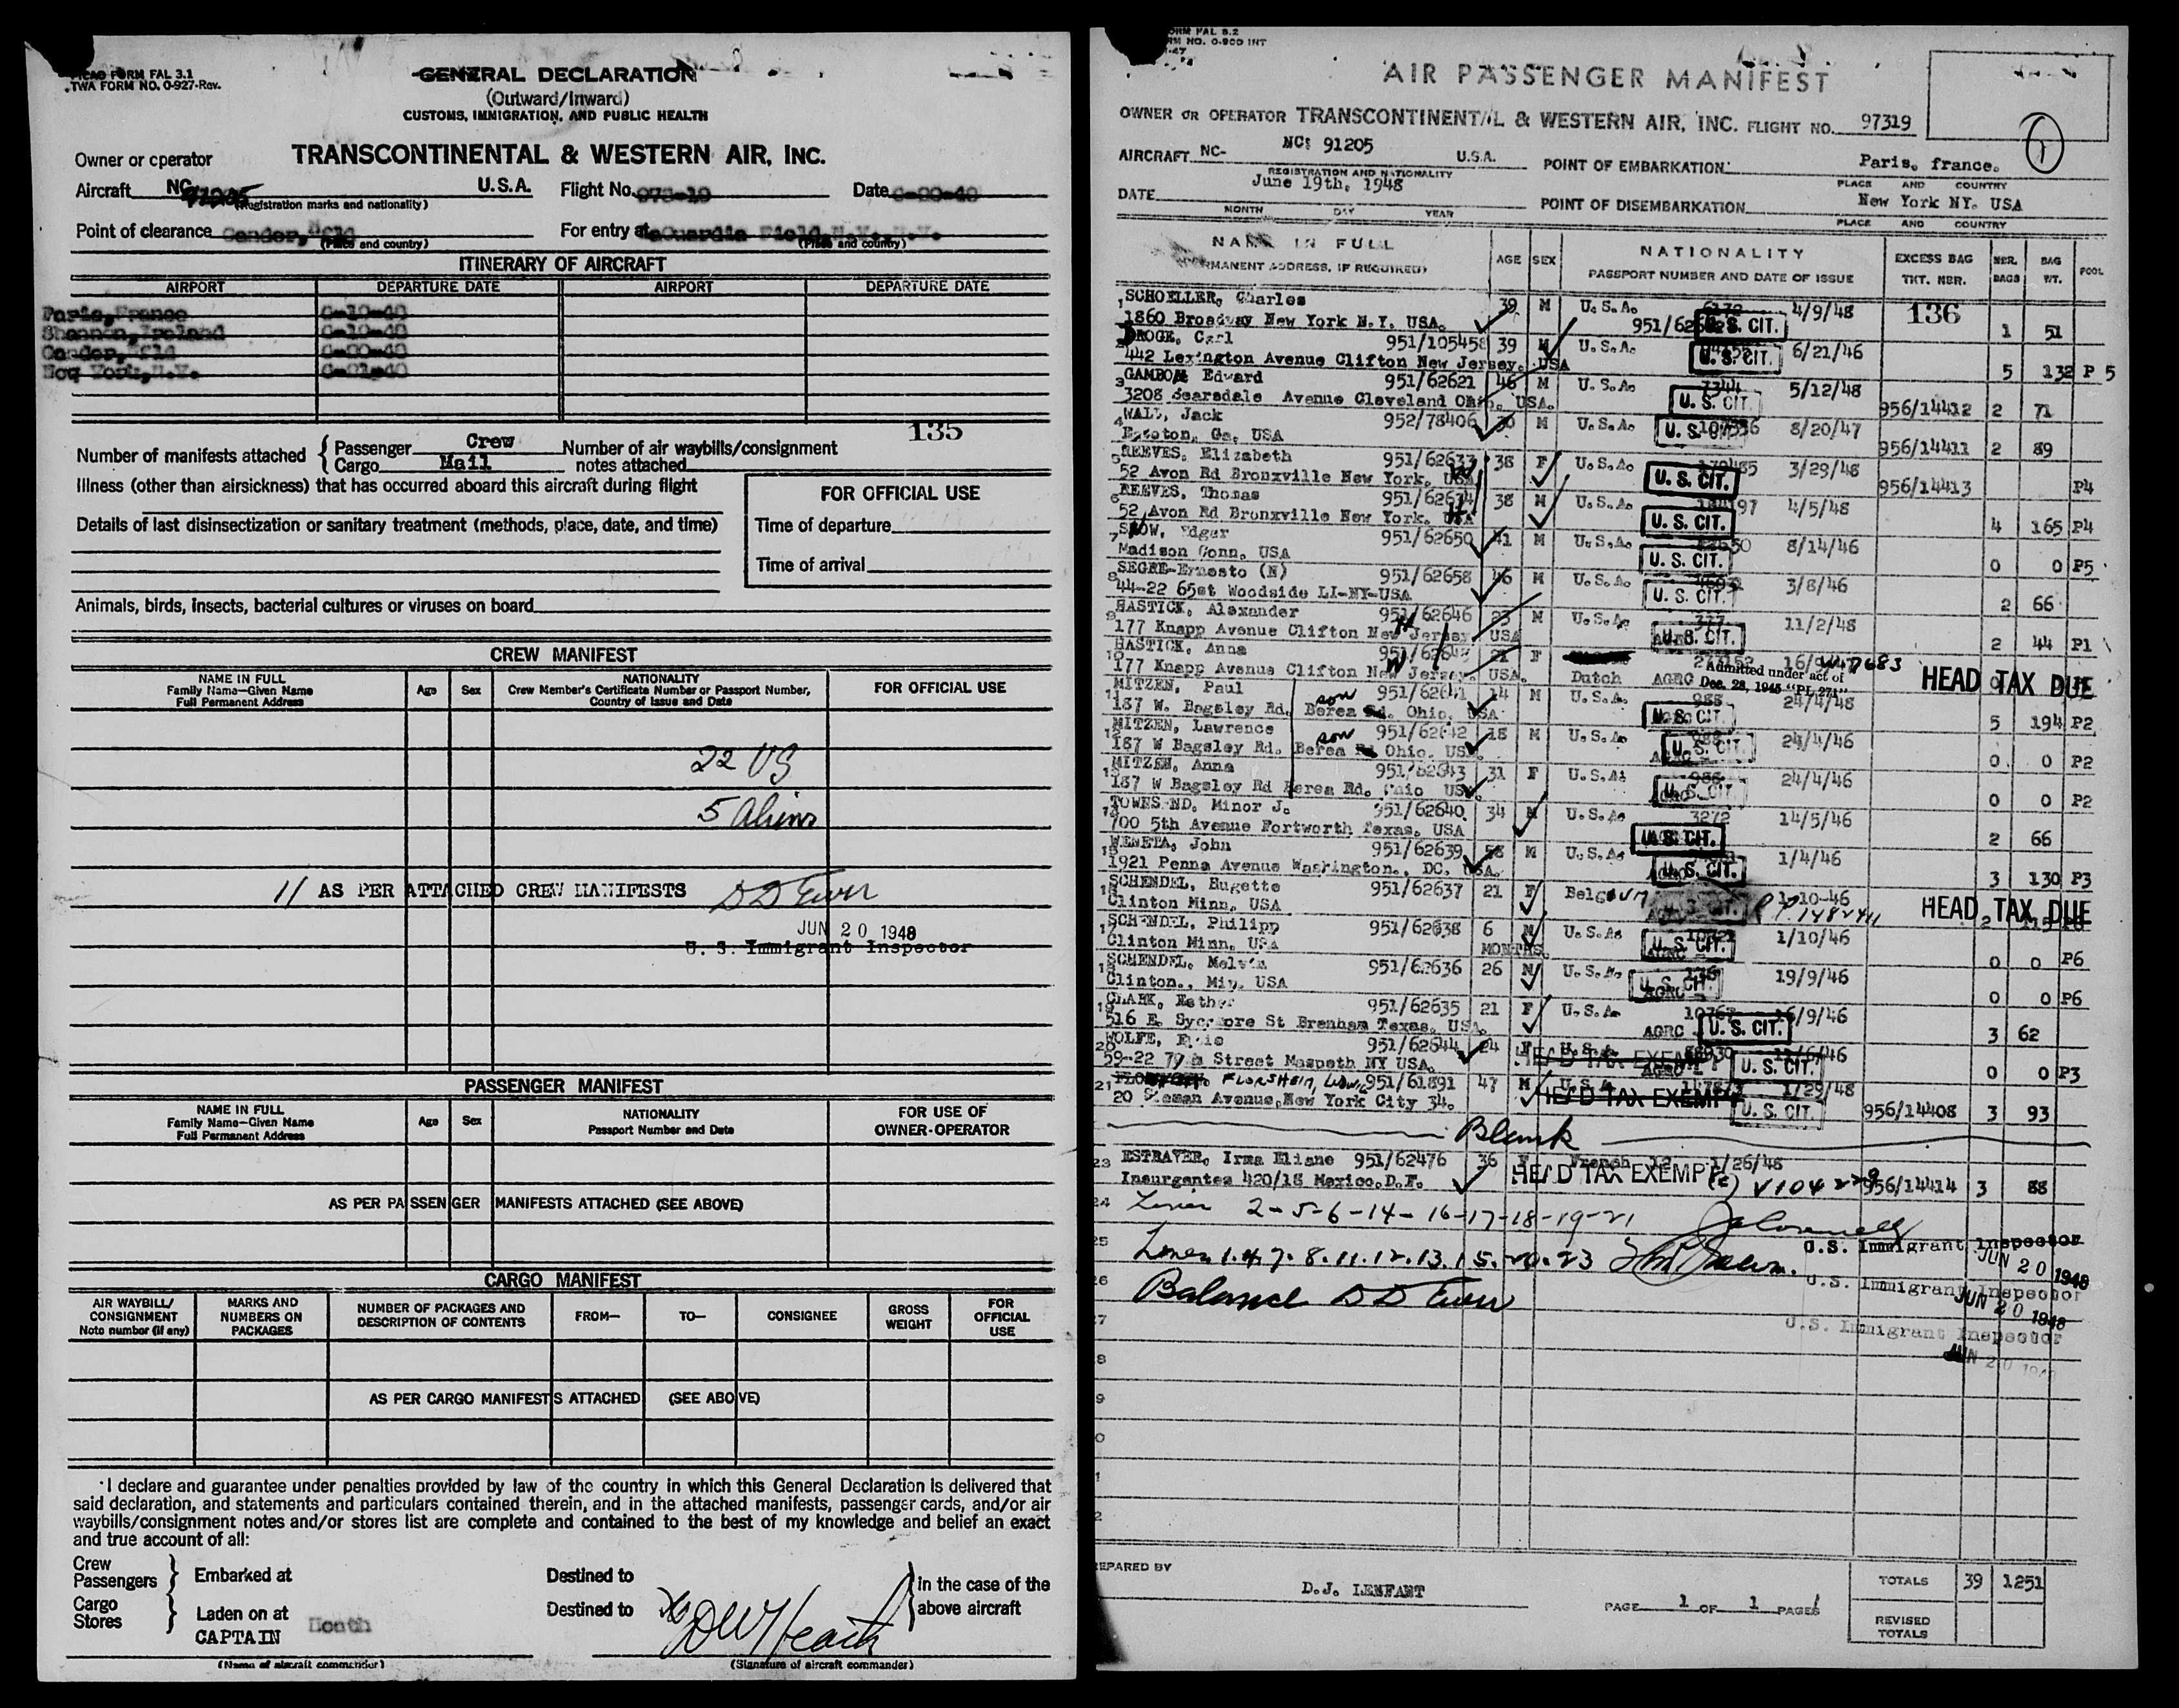 ICAO FORM FAL 3.1
TWA FORM NO. 0-927-Rev.
GENERAL DECLARATION
(Outward/Inward)
CUSTOMS, IMMIGRATION, AND PUBLIC HEALTH
Owner or operator TRANSCONTINENTAL & WESTERN AIR, INC.
Aircraft NC 91205 U.S.A. Flight No. 973-19 Date 6-20-48
(Registration marks and nationality)
Point of clearance Gander, Nfld For entry at LaGuardia Field, N.Y., N.Y.
(Place and country) (Place and country)
ITINERARY OF AIRCRAFT
AIRPORT DEPARTURE DATE AIRPORT DEPARTURE DATE
Paris, France 6-19-48
Shannon, Ireland 6-19-48
Gander, Nfld 6-20-48
New York, N.Y.
135
Number of manifests attached { Passenger Crew Number of air waybills/consignment
Cargo Mail notes attached
Illness (other than airsickness) that has occurred aboard this aircraft during flight
Details of last disinsectization or sanitary treatment (methods, place, date, and time)
FOR OFFICIAL USE
Time of departure
Time of arrival
Animals, birds, insects, bacterial cultures or viruses on board
CREW MANIFEST
NAME IN FULL
Family Name—Given Name
Full Permanent Address
Age Sex
NATIONALITY
Crew Member's Certificate Number or Passport Number,
Country of Issue and Date
FOR OFFICIAL USE
22 US
5 Aliens
11 AS PER ATTACHED CREW MANIFESTS
JUN 20 1948
U. S. Immigrant Inspector
PASSENGER MANIFEST
NAME IN FULL
Family Name—Given Name
Full Permanent Address
Age Sex
NATIONALITY
Passport Number and Date
FOR USE OF
OWNER-OPERATOR
AS PER PASSENGER MANIFESTS ATTACHED (SEE ABOVE)
CARGO MANIFEST
AIR WAYBILL/
CONSIGNMENT
Note number (if any)
MARKS AND
NUMBERS ON
PACKAGES
NUMBER OF PACKAGES AND
DESCRIPTION OF CONTENTS
FROM— TO— CONSIGNEE
GROSS
WEIGHT
FOR
OFFICIAL
USE
AS PER CARGO MANIFESTS ATTACHED (SEE ABOVE)
I declare and guarantee under penalties provided by law of the country in which this General Declaration is delivered that
said declaration, and statements and particulars contained therein, and in the attached manifests, passenger cards, and/or air
waybills/consignment notes and/or stores list are complete and contained to the best of my knowledge and belief an exact
and true account of all:
Crew
Passengers } Embarked at Destined to
Cargo
Stores } Laden on at Destined to
in the case of the
above aircraft
CAPTAIN Heath
(Name of aircraft commander) (Signature of aircraft commander)
FORM FAL 3.2
NO. 0-900 INT
AIR PASSENGER MANIFEST
OWNER OR OPERATOR TRANSCONTINENTAL & WESTERN AIR, INC. FLIGHT NO. 97319
1
AIRCRAFT NC- NC: 91205 U.S.A. POINT OF EMBARKATION: Paris, france.
REGISTRATION AND NATIONALITY PLACE AND COUNTRY
DATE June 19th, 1948 POINT OF DISEMBARKATION New York NY. USA
MONTH DAY YEAR PLACE AND COUNTRY
NAME IN FULL AGE SEX NATIONALITY EXCESS BAG NBR. BAG POOL
PERMANENT ADDRESS, IF REQUIRED) PASSPORT NUMBER AND DATE OF ISSUE TKT. NBR. BAGS WT.
1 SCHOELLER, Charles 39 M U.S.A. 4/9/48 136
1860 Broadway New York N.Y. USA. U.S. CIT. 1 51
DROGE, Carl 951/105458 39 M U.S.A. 6/21/46
442 Lexington Avenue Clifton New Jersey. USA U.S. CIT. 5 132 P 5
3 GAMBOA Edward 951/62621 46 M U.S.A. 7344 5/12/48
3208 Searsdale Avenue Cleveland Ohio. USA. U.S. CIT. 956/14412 2 71
4 WALL, Jack 952/78406 M U.S.A. 8/20/47
Ga, USA U.S. CIT. 956/14411 2 89
5 REEVES, Elizabeth 951/62633 38 F U.S.A. 3/29/48
52 Avon Rd Bronxville New York. USA W U.S. CIT. 956/14413 P4
6 REEVES, Thomas 951/62634 38 M U.S.A. 4/5/48
52 Avon Rd Bronxville New York. USA H U.S. CIT. 4 165 P4
7 SNOW, Edgar 951/62650 41 M U.S.A. 8/14/46
Madison Conn. USA U.S. CIT. 0 0 P5
8 SEGRE-Ernesto (N) 951/62658 46 M U.S.A. 3/8/46
44-22 65st Woodside LI-NY-USA U.S. CIT. 2 66
9 HASTICK, Alexander 951/62646 23 M U.S.A. 377 11/2/48
177 Knapp Avenue Clifton New Jersey USA H U.S. CIT. 2 44 P1
10 HASTICK, Anna 21 F
177 Knapp Avenue Clifton New Jersey. USA. W Dutch AGRC Admitted under act of Dec. 28, 1945 "PL 271" HEAD TAX DUE
11 MITZEN, Paul son 951/62641 14 M U.S.A. 24/4/48
187 W. Bagsley Rd. Berea Rd. Ohio. USA U.S. CIT. 5 194 P2
12 MITZEN, Lawrence son 951/62642 18 M U.S.A. 24/4/46
187 W Bagsley Rd. Berea Ohio. USA U.S. CIT. 0 0 P2
13 MITZEN, Anna 951/62643 31 F U.S.A. 986 24/4/46
187 W Bagsley Rd Berea Rd. Ohio USA. U.S. CIT. 0 0 P2
14 TOWNSEND, Minor J. 951/62640 34 M U.S.A. 3272 14/5/46
700 5th Avenue Fortworth Texas. USA U.S. CIT. 2 66
15 WENETA, John 951/62639 58 M U.S.A. 1/4/46
1921 Penna Avenue Washington., DC. USA. U.S. CIT. 3 130 P3
SCHENDEL, Hugette 951/62637 21 F Belgium 1-10-46
Clinton Minn. USA HEAD TAX DUE
17 SCHENDEL, Philipp 951/62638 6 MONTHS M U.S.A. 1/10/46
Clinton Minn. USA U.S. CIT. 0 0 P6
18 SCHENDEL, Melvin 951/62636 26 M U.S.A. 19/9/46
Clinton., Min. USA U.S. CIT. AGRC 0 0 P6
19 CLARK, Esther 951/62635 21 F U.S.A. 16/9/46
516 E. Sycamore St Brenham Texas. USA. AGRC U.S. CIT. 3 62
20 WOLFE, Elsie 951/62644 24 F U.S.A. HEAD TAX EXEMPT 11/6/46
59-22 79th Street Maspeth NY USA. U.S. CIT. 0 0 P3
21 FLORSHEIM, Ludwig 951/61891 47 M U.S.A. HEAD TAX EXEMPT 1/29/48
20 Avenue, New York City 34. U.S. CIT. 956/14408 3 93
Blank
23 ESTRAYER, Irma Eliane 951/62476 36 F French 1/26/48
Insurgentes 420/18 Mexico.D.F. HEAD TAX EXEMPT 956/14414 3 88
24 Lines 2-5-6-14-16-17-18-19-21
U.S. Immigrant Inspector
25 Lines 1.4.7.8.11.12.13.15.20.23
JUN 20 1948
U.S. Immigrant Inspector
26 Balance
JUN 20 1948
U.S. Immigrant Inspector
JUN 20 1948
PREPARED BY D.J. LENFANT
PAGE 1 OF 1 PAGES
TOTALS 39 1251
REVISED TOTALS